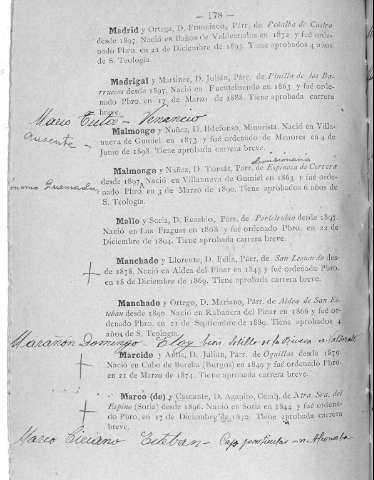 — 178 —
Madrid y Ortega, D. Francisco, Párr. de Peñalba de Castro
desde 1897. Nació en Baños de Valdearados en 1872 y fué orde-
nado Pbro. en 21 de Diciembre de 1895. Tiene aprobados 4 años
de S. Teología.
Madrigal y Martínez, D. Julián, Párr. de Pinilla de los Ba-
rruecos desde 1897. Nació en Fuentelisendo en 1863 y fué orde-
nado Pbro. en 17 de Marzo de 1888. Tiene aprobada carrera
breve.
Marco Venancio
ausente
Malmongo y Núñez, D. Ildefonso, Minorista. Nació en Villa-
nueva de Gumiel en 1873 y fué ordenado de Menores en 4 de
Junio de 1898. Tiene aprobada carrera breve.
Malmongo y Núñez, D. Tomás, Párr. de Espinosa de Cervera
desde 1897. Nació en Villanueva de Gumiel en 1863 y fué orde-
nado Pbro. en 3 de Marzo de 1890. Tiene aprobados 6 años de
S. Teología.
Mallo y Soria, D. Eusebio, Párr. de desde 1897.
Nació en Las Fraguas en 1868 y fué ordenado Pbro. en 22 de
Diciembre de 1894. Tiene aprobada carrera breve.
Manchado y Llorente, D. Félix, Párr. de San Leonardo des-
de 1878. Nació en Aldea del Pinar en 1845 y fué ordenado Pbro.
en 18 de Diciembre de 1869. Tiene aprobada carrera breve.
Manchado y Ortego, D. Mariano, Párr. de Aldea de San Es-
teban desde 1890. Nació en Rabanera del Pinar en 1866 y fué orde-
nado Pbro. en 21 de Septiembre de 1889. Tiene aprobados 4
años de S. Teología.
Marañon Domingo - Eloy
Marcido y Adría, D. Julián, Párr. de Oquillas desde 1879.
Nació en Cubo de Bureba (Burgos) en 1849 y fué ordenado Pbro.
en 21 de Marzo de 1874. Tiene aprobada carrera breve.
Marco (de) y Cascante, D. Agapito, Ntra. Sra. del
Espino (Soria) desde 1896. Nació en Soria en 1844 y fué orde-
nado Pbro. en 17 de Diciembre de 1872. Tiene aprobada carrera
breve.
Marco Ciriano Esteban -